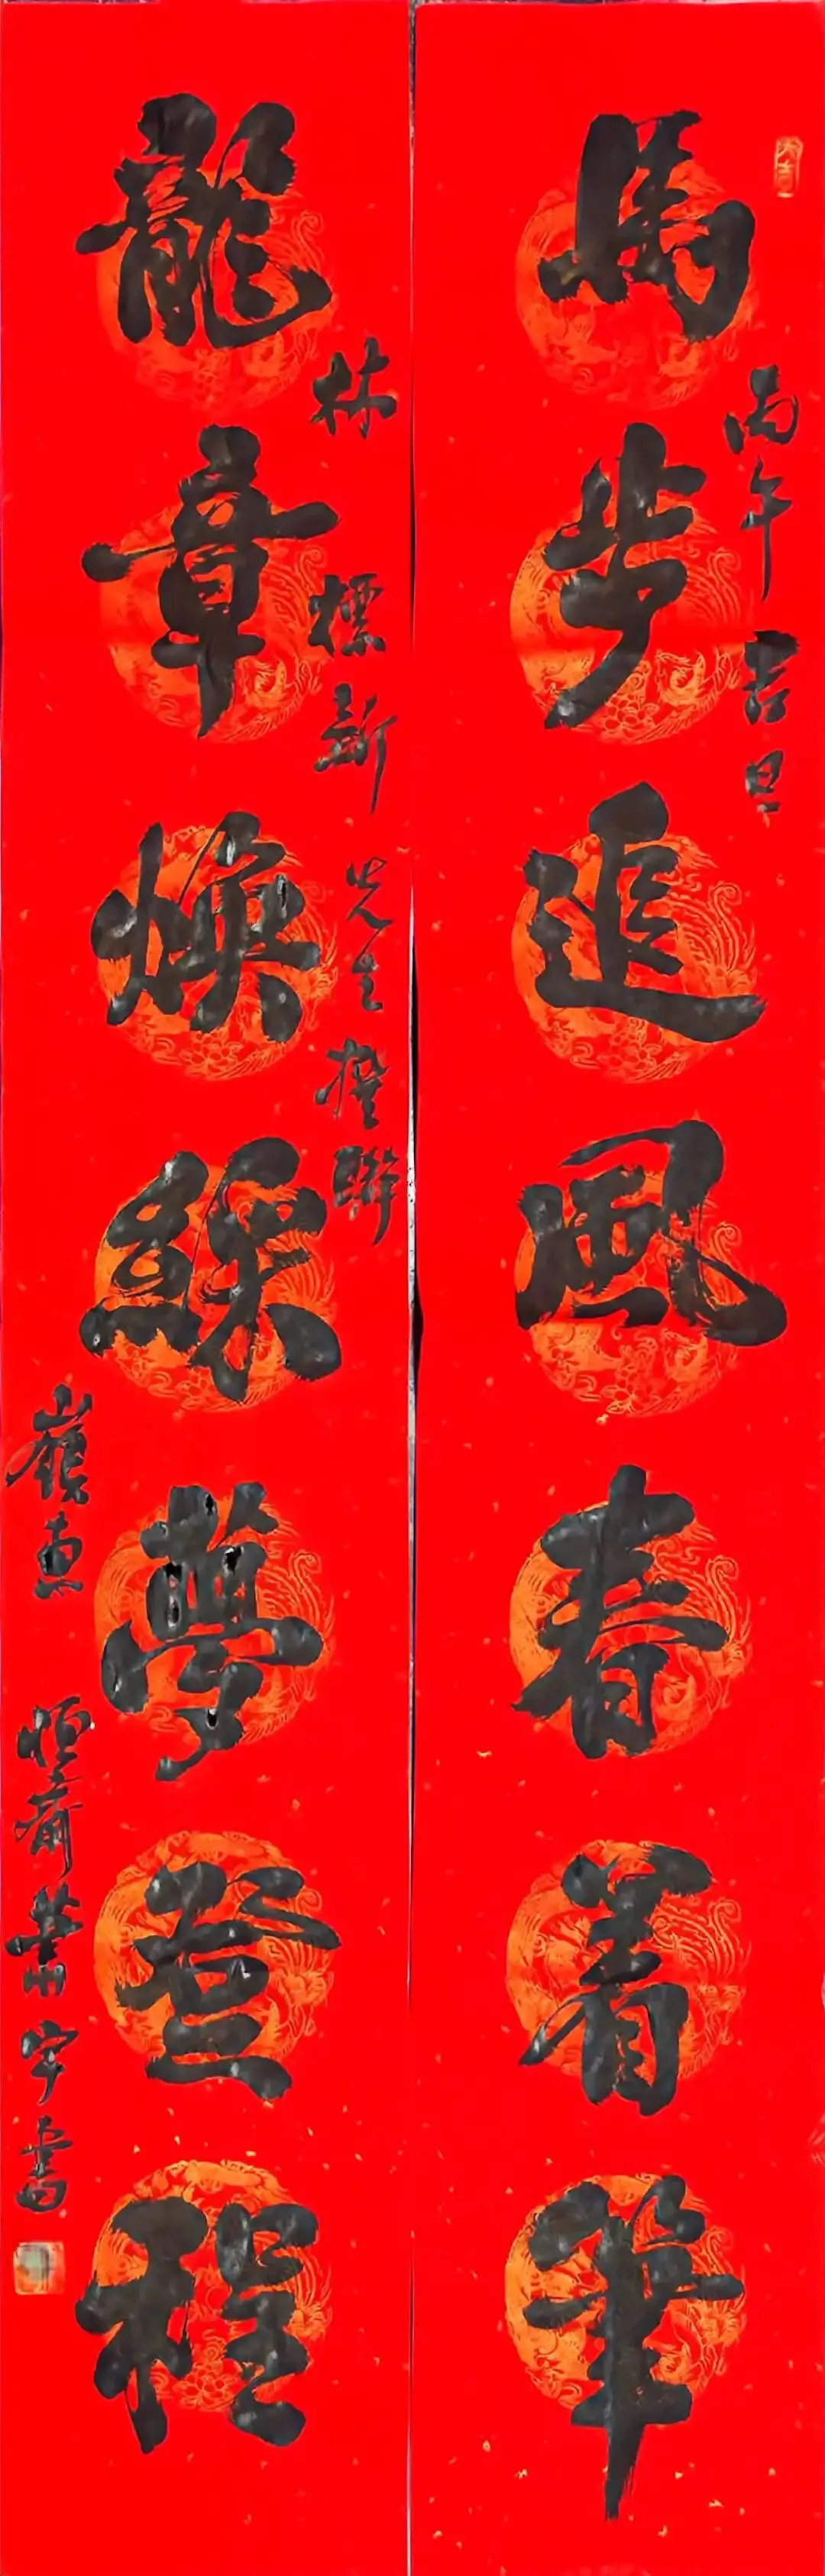 馬步追風春着筆
丙午吉旦
龍章煥綵夢登程
林標新先生撰聯
嶺東恒齋蕭宇書